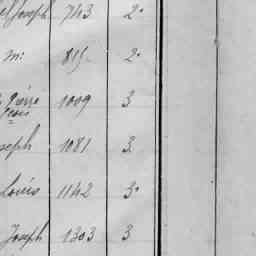 Joseph 743 2.
m: 815. 2.
Pierre 1009 3.
seph 1081 3.
Louis 1142 3.
Joseph 1303 3